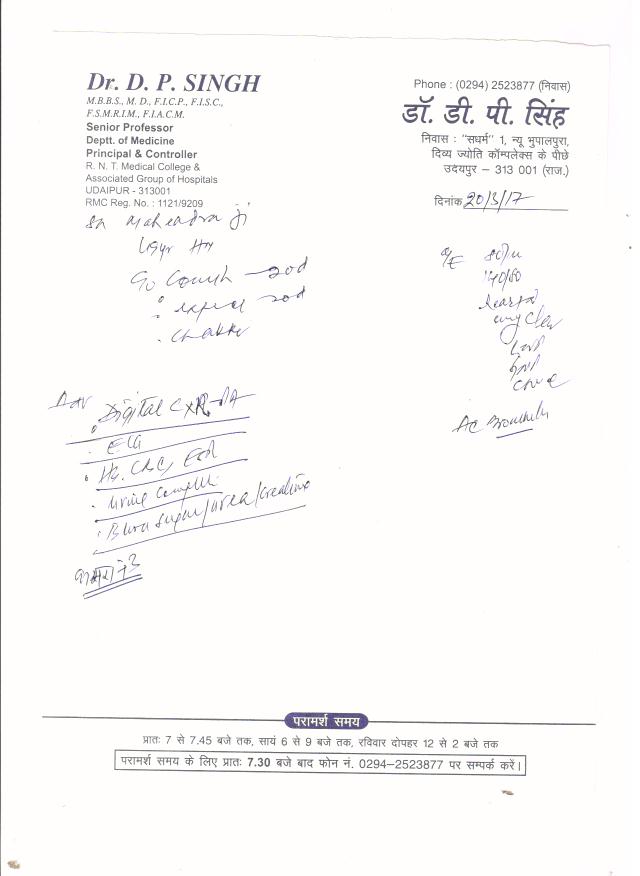 Dr. D. P. SINGH
M.B.B.S., M. D., F.I.C.P., F.I.S.C.,
F.S.M.R.I.M., F.I.A.C.M.
Senior Professor
Deptt. of Medicine
Principal & Controller
R. N. T. Medical College &
Associated Group of Hospitals
UDAIPUR - 313001
RMC Reg. No. : 1121/9209
Phone : (0294) 2523877 (निवास)
डॉ. डी. पी. सिंह
निवास : "सधर्म" 1, न्यू भुपालपुरा,
दिव्य ज्योति कॉम्पलेक्स के पीछे
उदयपुर – 313 001 (राज.)
दिनांक 20/3/17
Mahendra ji
Cough
O/E
140/80
Chest
Adv
Digital CXR-PA
ECG
Hb, CBC, ESR
Urine Complete
Blood Sugar/urea/creatinine
परामर्श समय
प्रातः 7 से 7.45 बजे तक, सायं 6 से 9 बजे तक, रविवार दोपहर 12 से 2 बजे तक
परामर्श समय के लिए प्रातः 7.30 बजे बाद फोन नं. 0294–2523877 पर सम्पर्क करें।